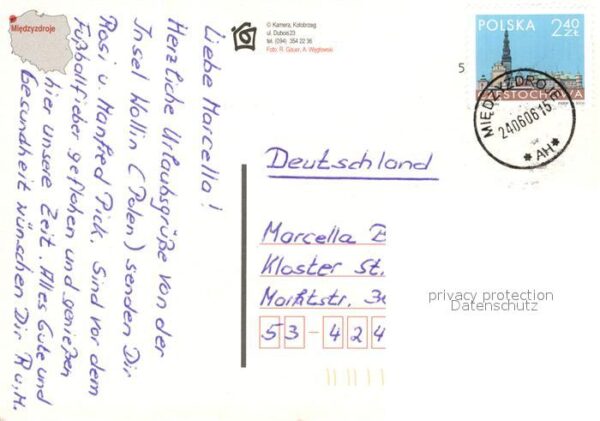 Międzyzdroje
© Kamera, Kołobrzeg
ul. Dubois 23
tel. (094) 354 22 36
Foto: R. Gauer, A. Węglowski
Liebe Marcella!
Herzliche Urlaubsgrüße von der
Insel Wollin (Polen) senden Dir
Rosi u. Manfred Pick. Sind vor dem
Fußballfieber geflohen und genießen
hier unsere Zeit. Alles Gute und
Gesundheit wünschen Dir R u. M.
POLSKA 2,40 ZŁ
CZĘSTOCHOWA
5
MIĘDZYZDROJE
240606 15
* AH *
Deutschland
Marcella B
Kloster St.
Marktstr. 30
53-424
privacy protection
Datenschutz